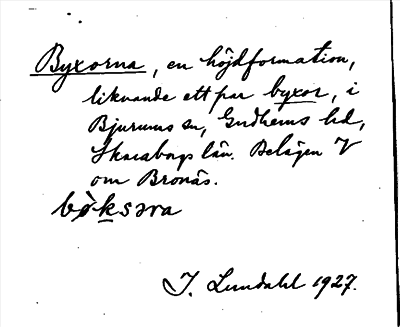 Byxorna, en höjdformation,
liknande ett par byxor, i
Bjurums sn, Gudhems hd,
Skaraborgs län. Belägen V
om Bronäs.
bòksəra
J. Lundahl 1927.